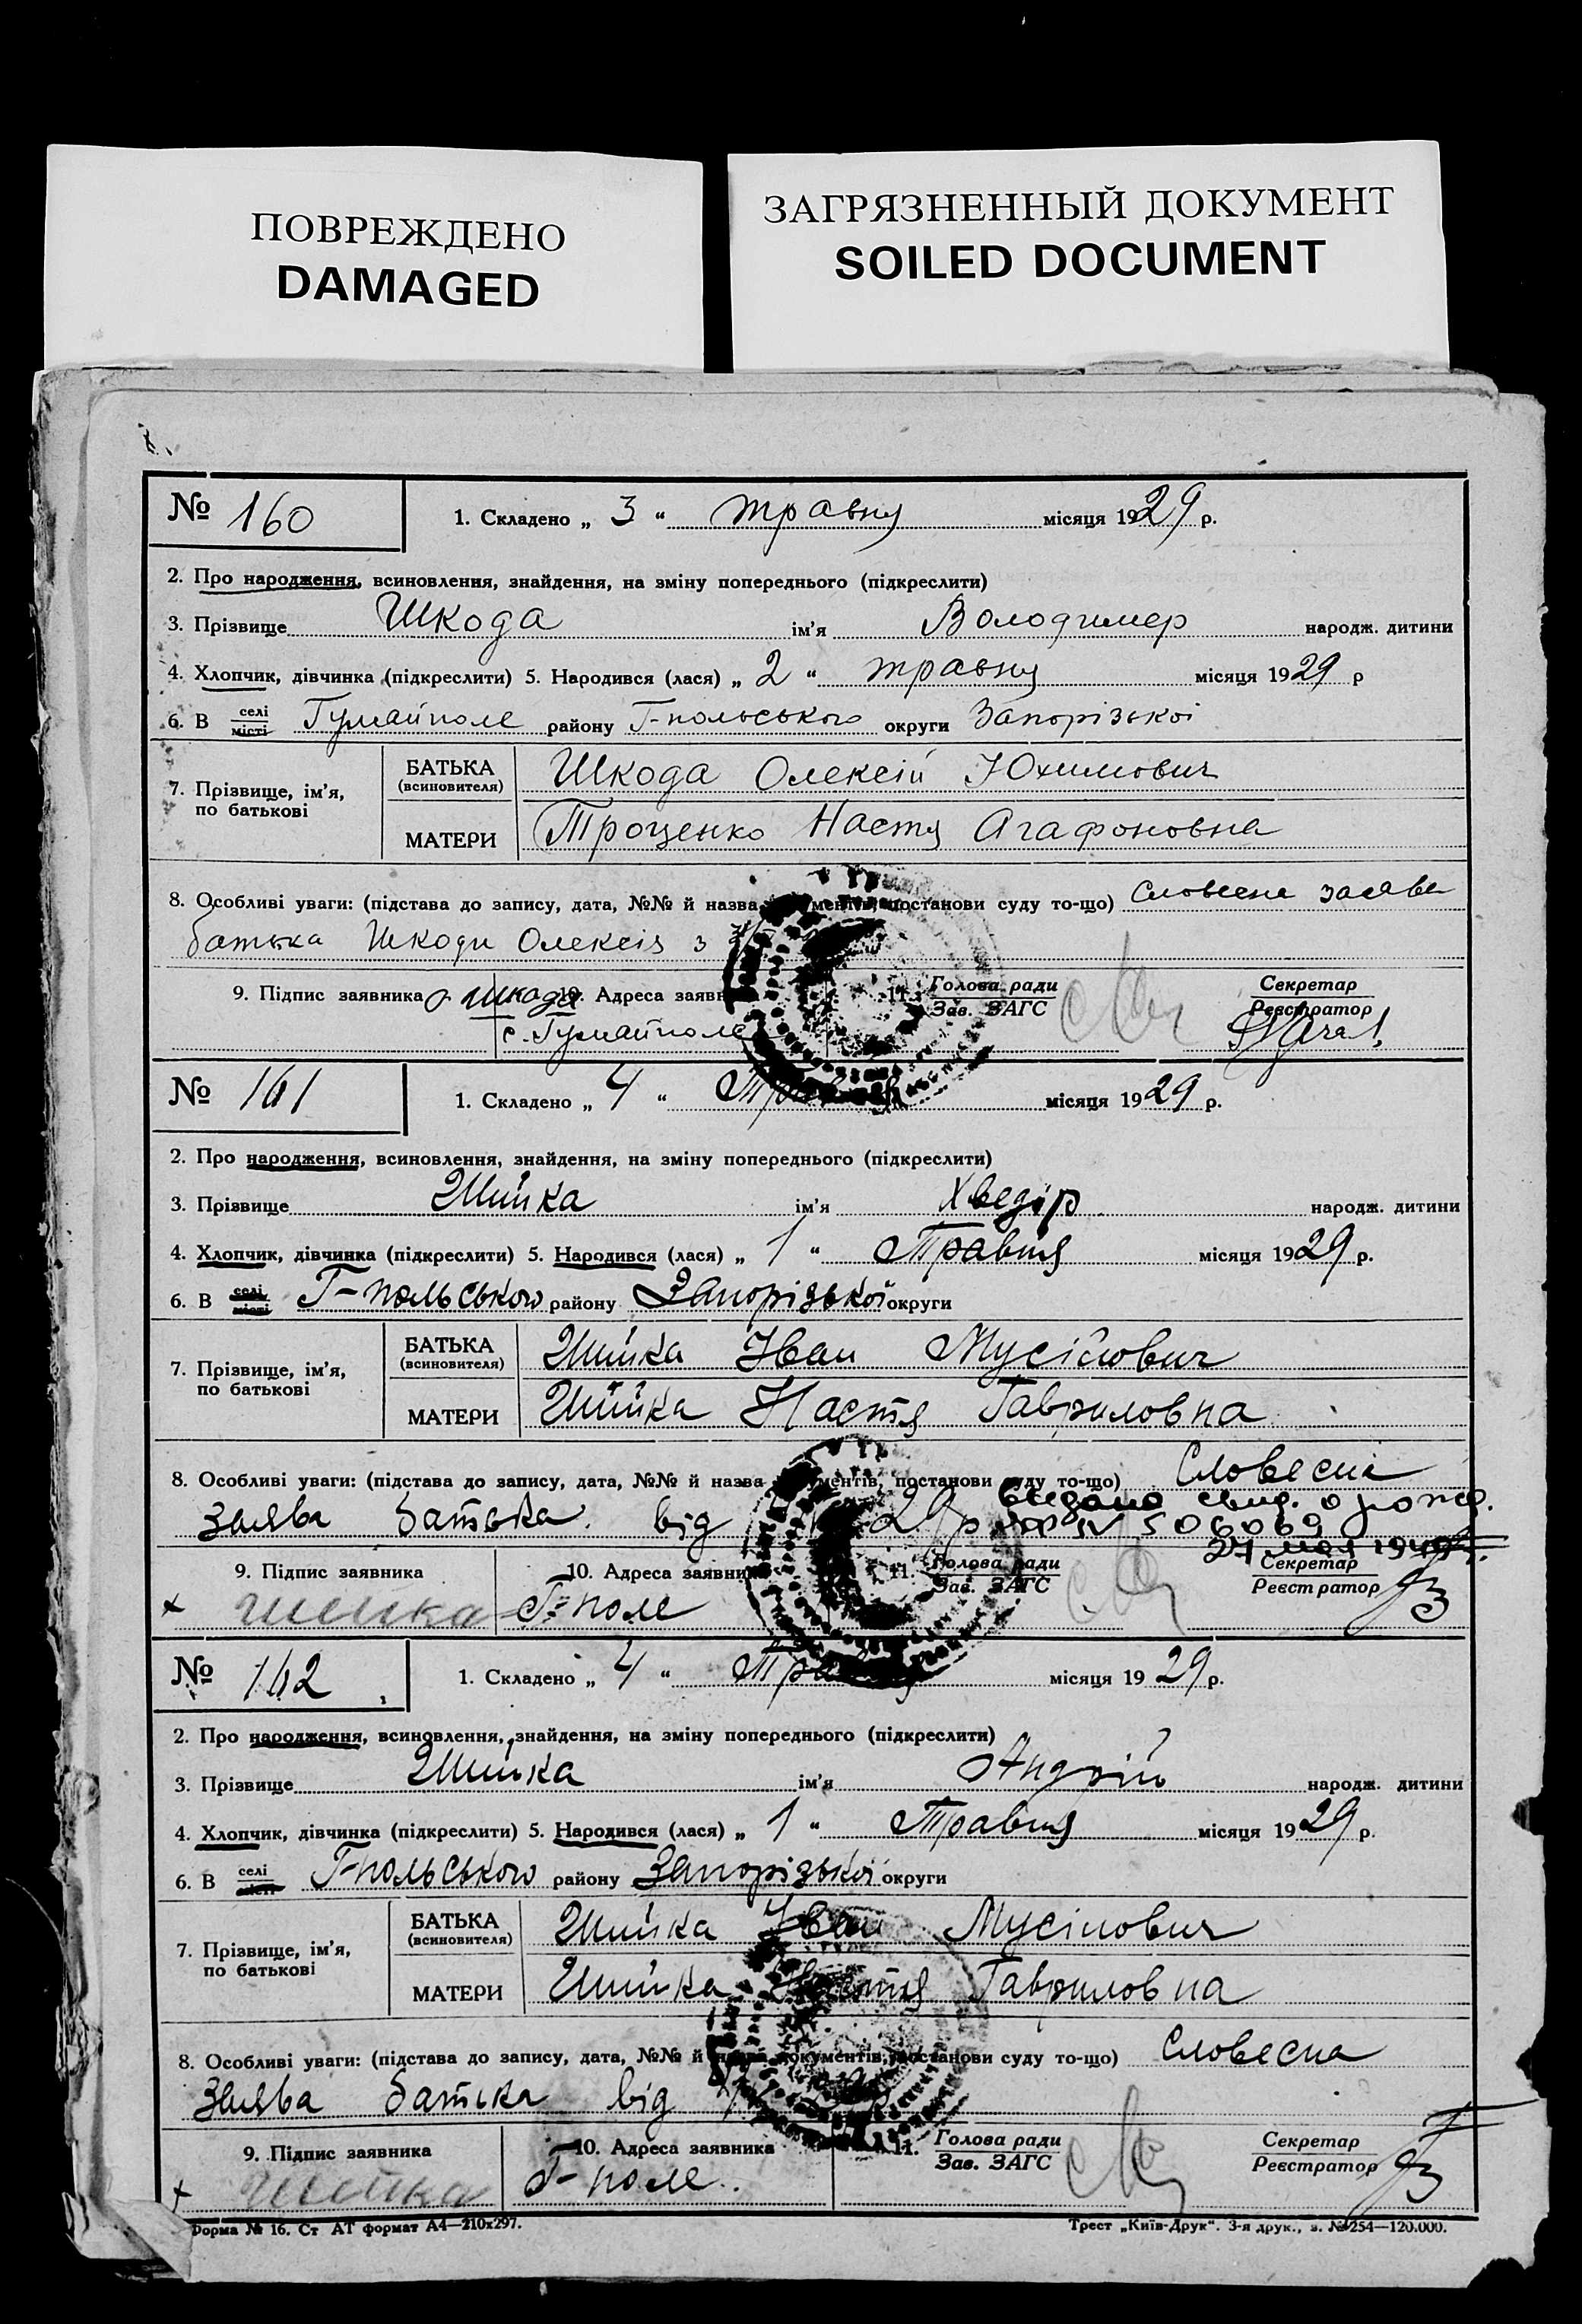 ПОВРЕЖДЕНО
DAMAGED
ЗАГРЯЗНЕННЫЙ ДОКУМЕНТ
SOILED DOCUMENT
№ 160
1. Складено „ 3 “ травня місяця 1929 р.
2. Про народження, всиновлення, знайдення, на зміну попереднього (підкреслити)
3. Прізвище Шкода ім’я Володимер народж. дитини
4. Хлопчик, дівчинка (підкреслити) 5. Народився (лася) „ 2 “ травня місяця 1929 р
6. В селі місті Гуляйполе району Г-польського округи Запорізької
7. Прізвище, ім’я, по батькові
БАТЬКА (всиновителя) Шкода Олексій Юхимович
МАТЕРИ Троценко Настя Агафоновна
8. Особливі уваги: (підстава до запису, дата, №№ й назва документів, постанови суду то-що) Словесна заява
батька Шкоди Олексія з
9. Підпис заявника О Шкода 10. Адреса заявника 11. Голова ради Зав. ЗАГС Секретар Реєстратор
с. Гуляйполе
№ 161
1. Складено „ 4 “ Травня місяця 1929 р.
2. Про народження, всиновлення, знайдення, на зміну попереднього (підкреслити)
3. Прізвище Шийка ім’я Хведір народж. дитини
4. Хлопчик, дівчинка (підкреслити) 5. Народився (лася) „ 1 “ Травня місяця 1929 р.
6. В селі місті Г-польського району Запорізької округи
7. Прізвище, ім’я, по батькові
БАТЬКА (всиновителя) Шийка Іван Мусійович
МАТЕРИ Шийка Настя Гавриловна
8. Особливі уваги: (підстава до запису, дата, №№ й назва документів, постанови суду то-що) Словесна
заява батька від 29 р
выдано свид. о рожд.
506069
27 мая
9. Підпис заявника 10. Адреса заявника 11. Голова ради Зав. ЗАГС Секретар Реєстратор
х Шийка Г-поле
№ 162
1. Складено „ 4 “ Травня місяця 1929 р.
2. Про народження, всиновлення, знайдення, на зміну попереднього (підкреслити)
3. Прізвище Шийка ім’я Андрій народж. дитини
4. Хлопчик, дівчинка (підкреслити) 5. Народився (лася) „ 1 “ Травня місяця 1929 р.
6. В селі місті Г-польського району Запорізької округи
7. Прізвище, ім’я, по батькові
БАТЬКА (всиновителя) Шийка Іван Мусійович
МАТЕРИ Шийка Настя Гавриловна
8. Особливі уваги: (підстава до запису, дата, №№ й назва документів, постанови суду то-що) Словесна
заява батька від
9. Підпис заявника 10. Адреса заявника 11. Голова ради Зав. ЗАГС Секретар Реєстратор
х Шийка Г-поле.
Форма № 16. Ст АТ формат А4—210х297.
Трест „Київ-Друк“. 3-я друк., з. №254—120.000.